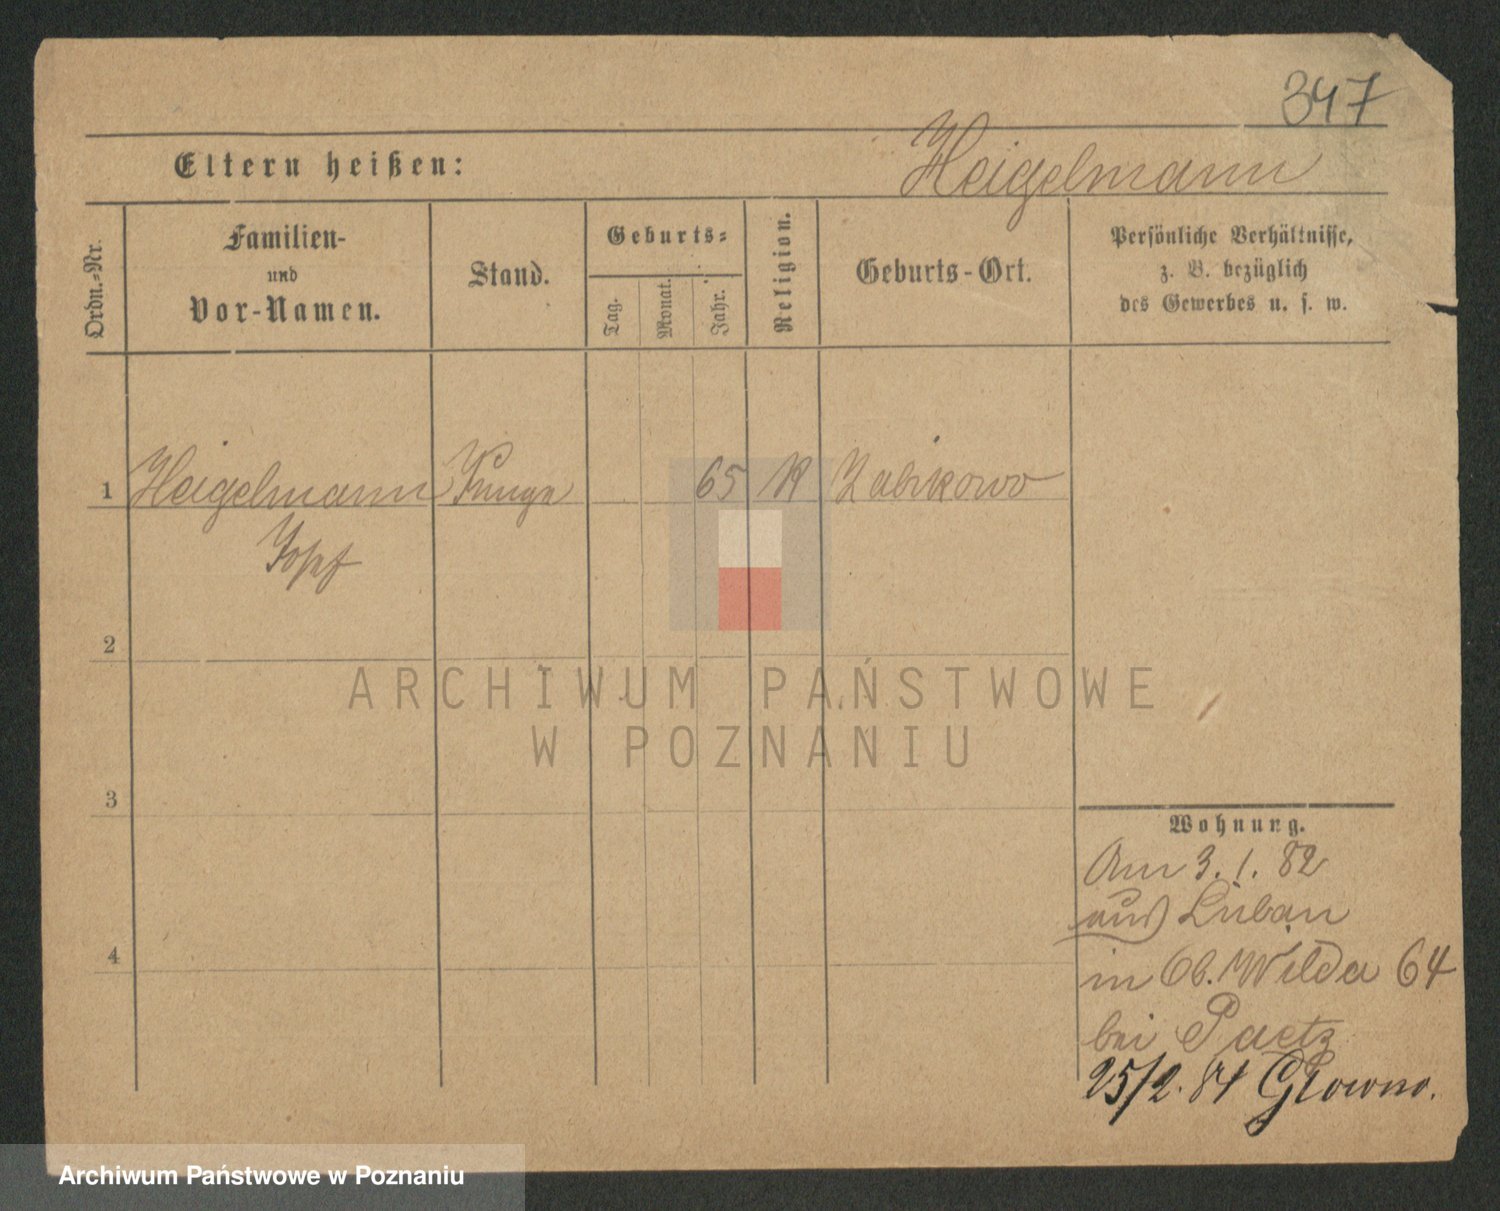 347
Heigelmann
Eltern heißen:
Ordn.-Nr.
Familien-
und
Vor-Namen.
Stand.
Geburts-
Tag.
Monat.
Jahr.
Religion.
Geburts-Ort.
Persönliche Verhältnisse,
z. B. bezüglich
des Gewerbes u. s. w.
1 Heigelmann Junge 65 K Zabikowo
Josef
2
3
4
Wohnung.
Am 3. 1. 82
aus Luban
in Ob. Wilda 64
bei Paetz
25/2. 84 Glowno.
ARCHIWUM PAŃSTWOWE
W POZNANIU
Archiwum Państwowe w Poznaniu